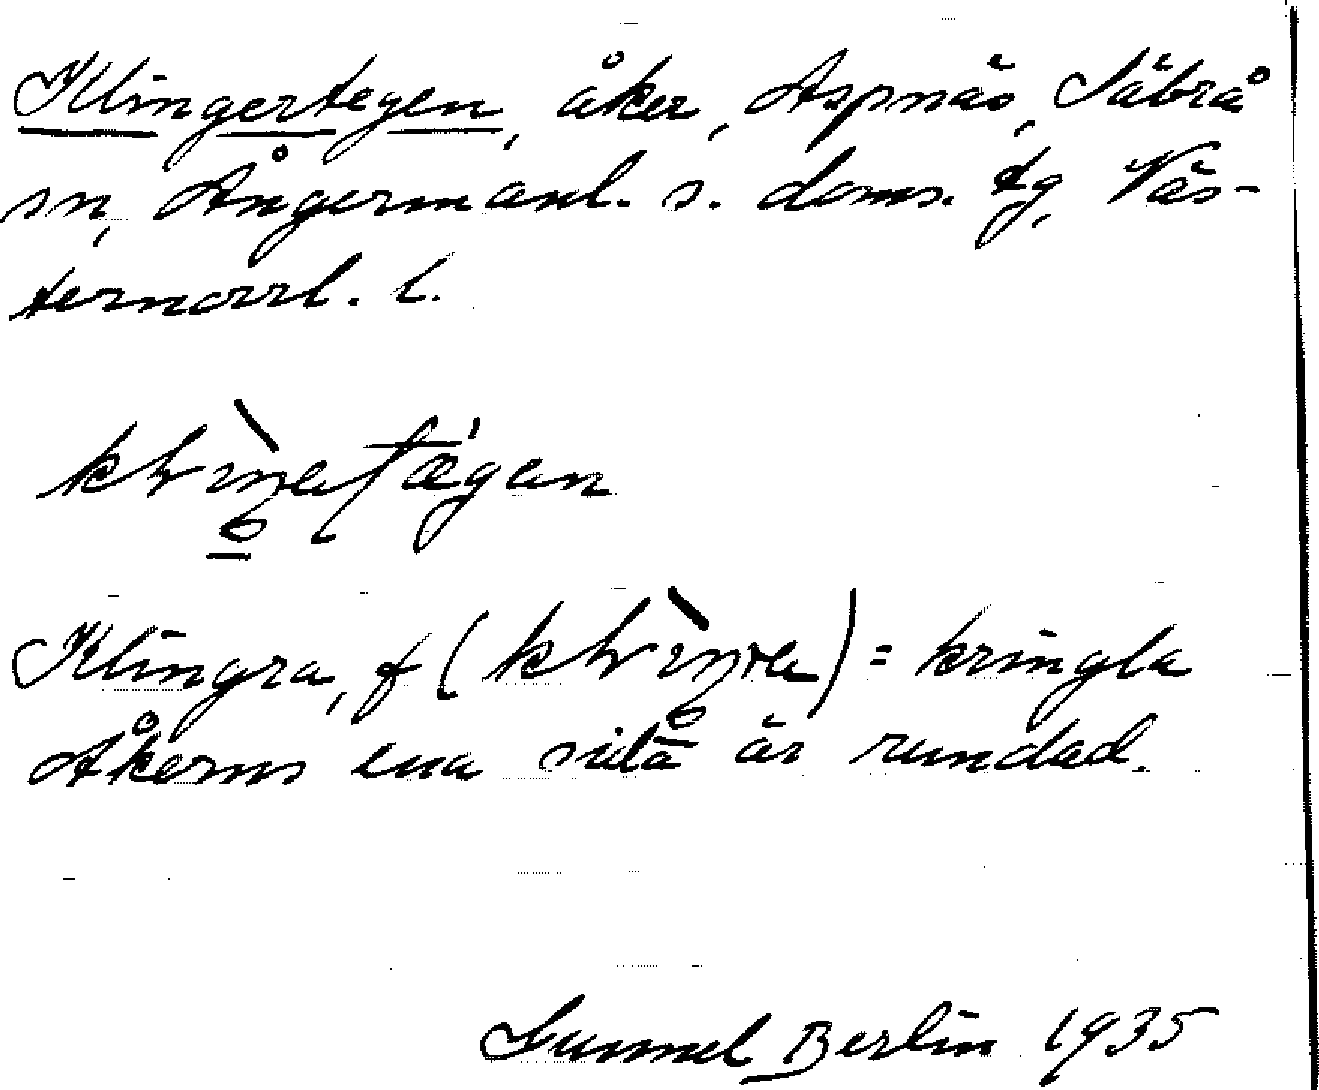 Klingertegen, åker, Aspnäs, Säbrå
sn, Ångermanl. s. doms. tg, Väs-
ternorrl. l.
Klingra, f ( ) = kringla
Åkerns ena sida är rundad.
Gunnel Berlin 1935